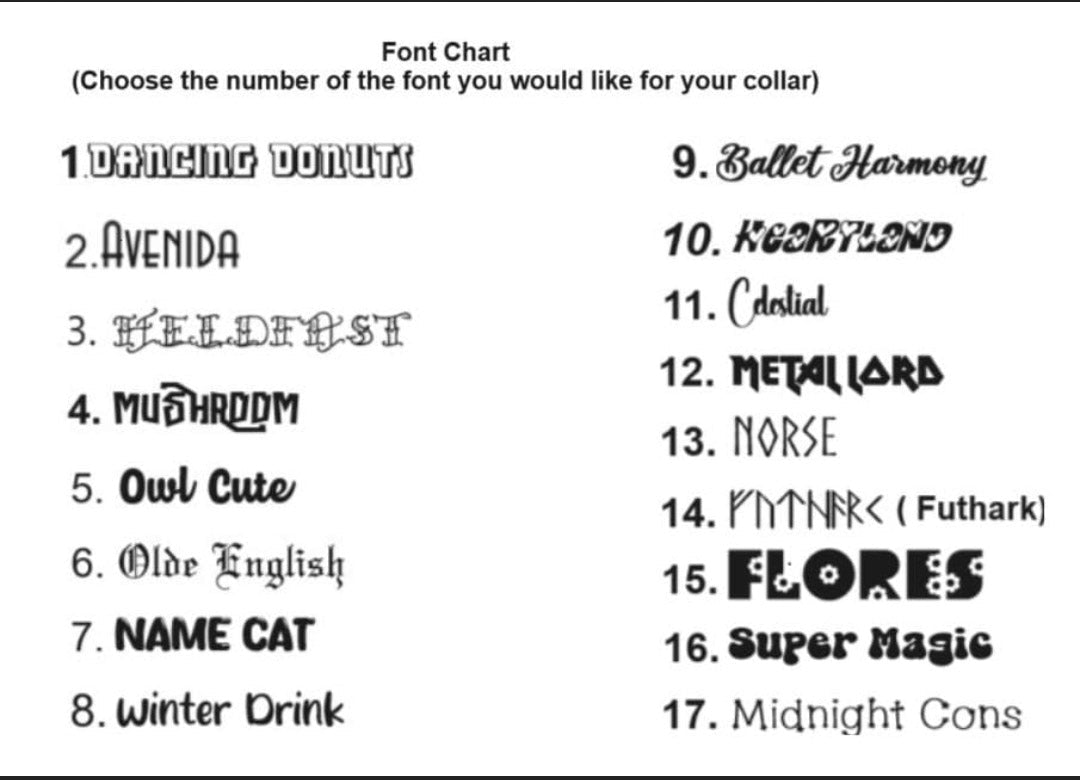 Font Chart
(Choose the number of the font you would like for your collar)
1.DANCING DONUTS
2.AVENIDA
3. HELLDEFAST
4. MUSHROOM
5. Owl Cute
6. Olde English
7. NAME CAT
8. Winter Drink
9. Ballet Harmony
10. HEARTLAND
11. Celestial
12. METAL LORD
13. NORSE
14. ᚠᚢᛏᚺᚨᚱᚲ ( Futhark)
15. FLORES
16. Super Magic
17. Midnight Cons